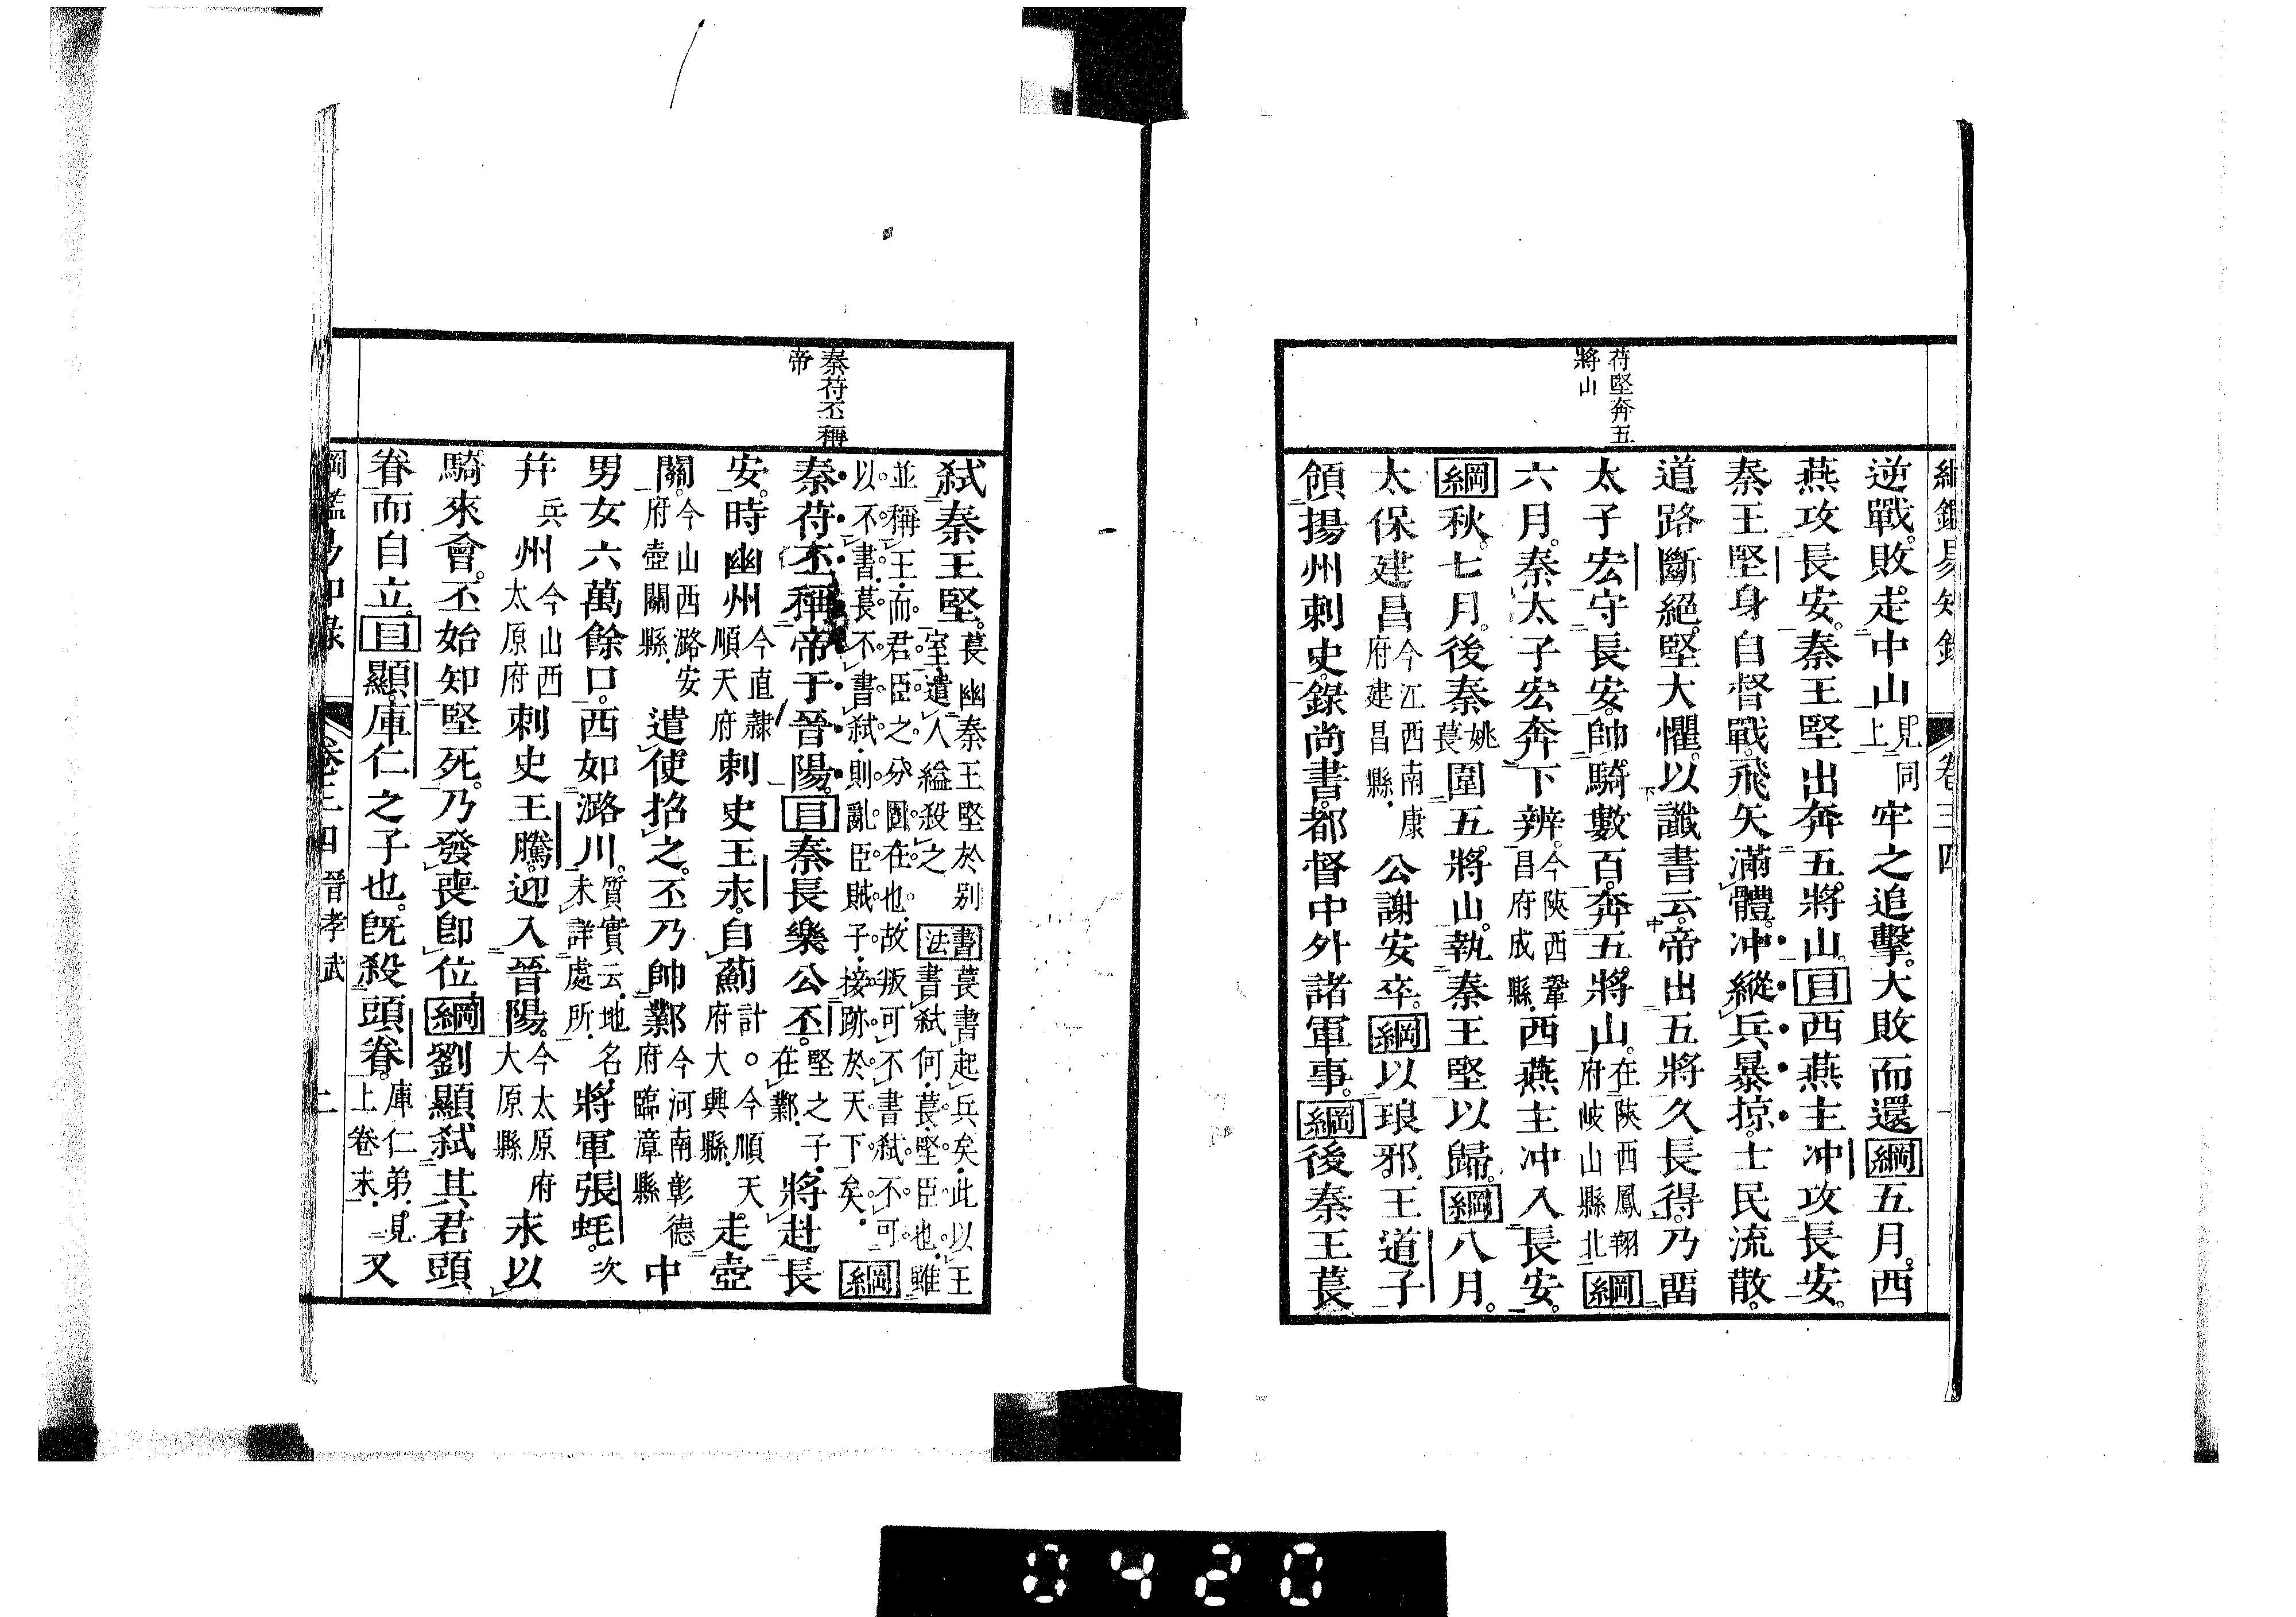 苻堅奔五
將山
逆戰。敗。走中山見上同牢之追擊。大敗而還綱五月。西
燕攻長安。秦王堅出奔五將山。目西燕主冲攻長安。
秦王堅身自督戰。飛矢滿體。冲縱兵暴掠。士民流散。
道路斷絕。堅大懼。以讖書云。帝出五將久長得。乃畱
太子宏守長安。帥騎數百。奔五將山。在陝西鳳翔府岐山縣北綱
六月。秦太子宏奔下辨。今陝西鞏昌府成縣西燕主冲入長安。
綱秋。七月。後秦姚萇圍五將山。執秦王堅以歸。綱八月。
太保建昌今江西南康府建昌縣公謝安卒。綱以琅邪王道子
領揚州刺史。錄尚書。都督中外諸軍事。綱後秦王萇
秦苻丕稱
帝
弒秦王堅。萇幽秦王堅於別室。遣人縊殺之書法萇書起兵矣。此以王書弒何。萇。堅臣也。雖
並稱王。而君臣之分固在也。故叛可不書。弒不可以不書。萇不書弒。則亂臣賊子。接跡於天下矣。綱
秦苻丕稱帝于晉陽。目秦長樂公丕。堅之子。在鄴將赴長
安。時幽州今直隸順天府刺史王永。自薊計。今順天府大興縣走壺
關。今山西潞安府壺關縣遣使招之。丕乃帥鄴今河南彰德府臨漳縣中
男女六萬餘口。西如潞川。質實云。地名。未詳處所將軍張蚝。次
幷兵州今山西太原府刺史王騰。迎入晉陽。今太原府大原縣永以
騎來會。丕始知堅死。乃發喪卽位。綱劉顯弒其君頭
眷而自立。目顯。庫仁之子也。旣殺頭眷。庫仁弟。見上卷末又
綱鑑易知錄 卷三四 晉孝武 二